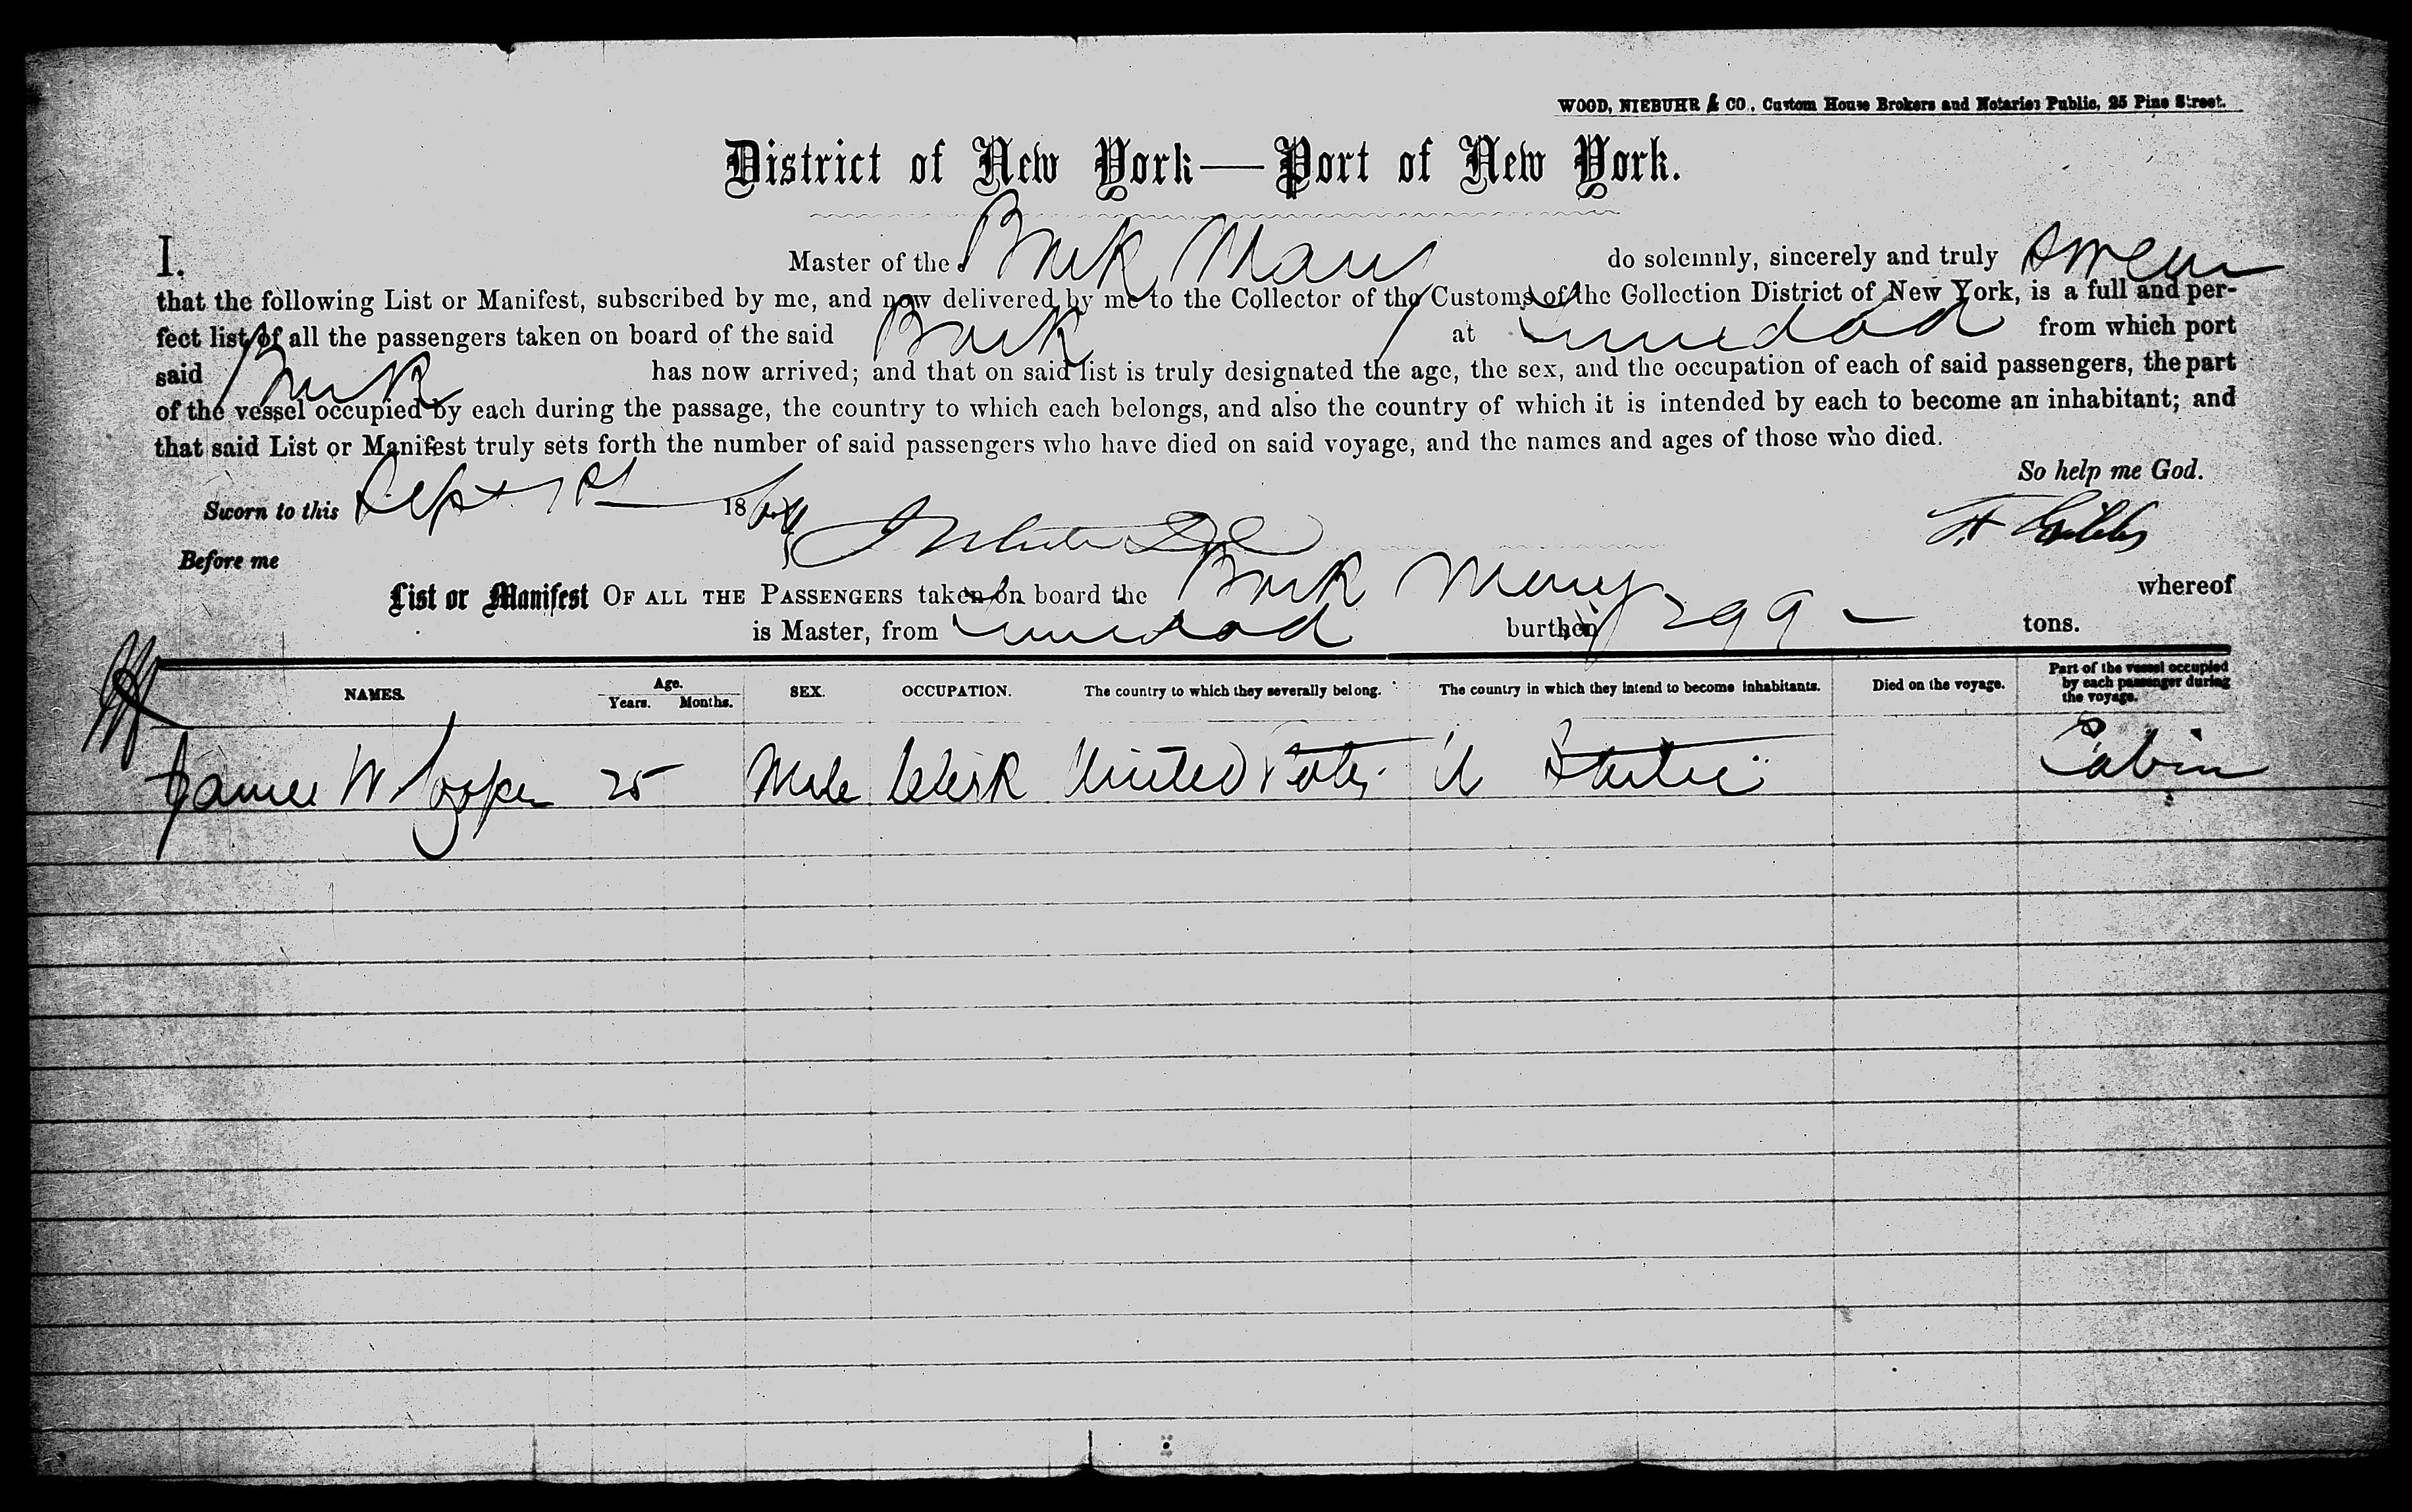 WOOD, NIEBUHR & CO., Custom House Brokers and Notaries Public, 25 Pine Street.
District of New York—Port of New York.
I. Master of the Bark Mary do solemnly, sincerely and truly swear
that the following List or Manifest, subscribed by me, and now delivered by me to the Collector of the Customs of the Collection District of New York, is a full and per-
fect list of all the passengers taken on board of the said Bark at Trinidad from which port
said Bark has now arrived; and that on said list is truly designated the age, the sex, and the occupation of each of said passengers, the part
of the vessel occupied by each during the passage, the country to which each belongs, and also the country of which it is intended by each to become an inhabitant; and
that said List or Manifest truly sets forth the number of said passengers who have died on said voyage, and the names and ages of those who died.
So help me God.
Sworn to this Sept 1st 186
F Gibbs
Before me
List or Manifest OF ALL THE PASSENGERS taken on board the Bark Mary whereof
is Master, from Trinidad burthen 299 - tons.
NAMES. Age. Years. Months. SEX. OCCUPATION. The country to which they severally belong. The country in which they intend to become inhabitants. Died on the voyage. Part of the vessel occupied by each passenger during the voyage.
James W 25 Male Clerk United States U States Cabin